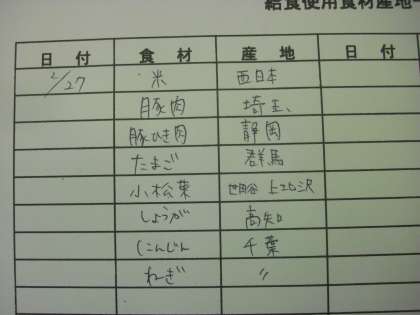 給食使用食材産地
日付 食材 産地 日付
2/27 米 西日本
豚肉 埼玉、
豚ひき肉 静岡
たまご 群馬
小松菜 世田谷
しょうが 高知
にんじん 千葉
ねぎ 〃